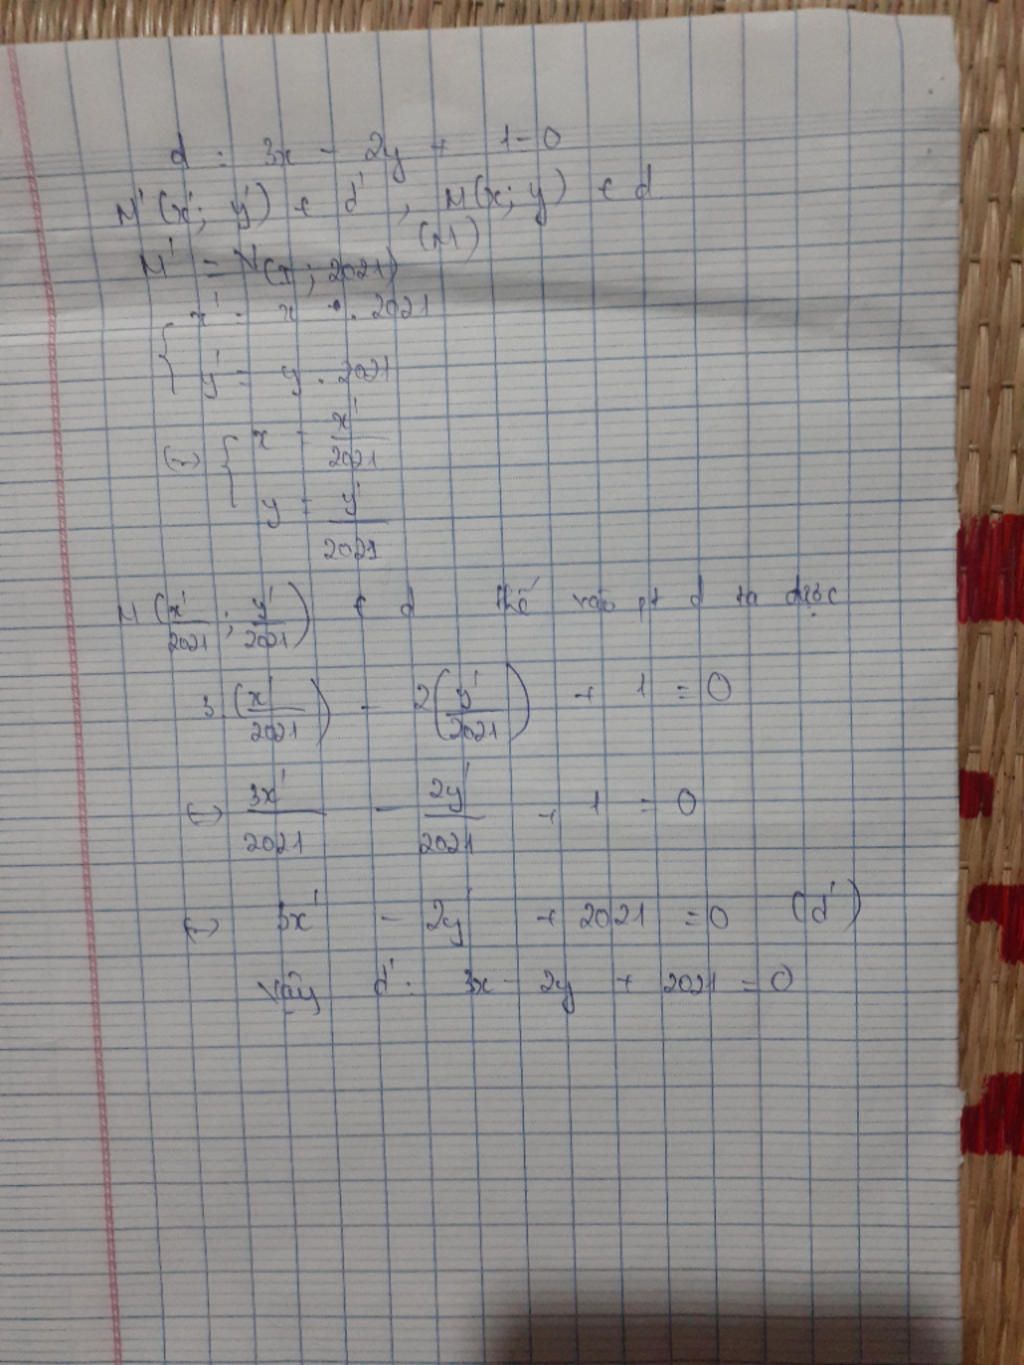 d : 3x - 2y + 1 = 0
M'(x'; y') ∈ d', M(x; y) ∈ d
(M)
M' = V(I; 2021)
{ x' = x . 2021
y' = y . 2021
(=) { x = x'/2021
y = y'/2021
M (x'/2021 ; y'/2021) ∈ d thế vào pt d ta được
3.(x'/2021) - 2(y'/2021) + 1 = 0
(=) 3x'/2021 - 2y'/2021 + 1 = 0
(=) 3x' - 2y' + 2021 = 0 (d')
Vậy d' : 3x - 2y + 2021 = 0